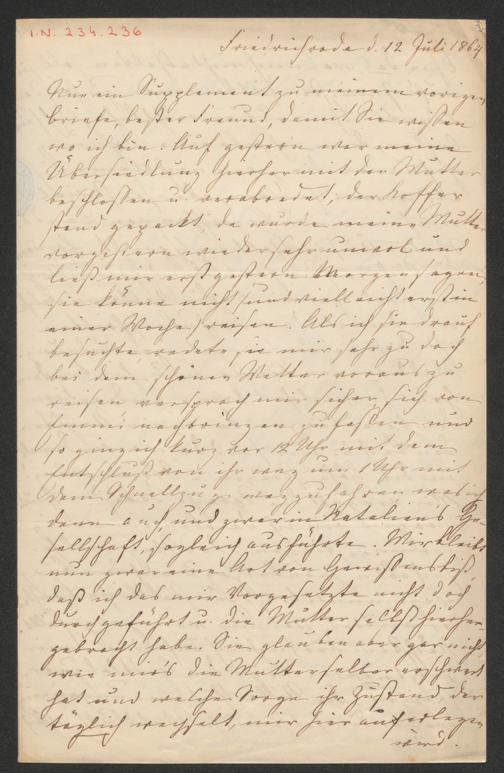 I.N. 234.236
Friedrichroda d. 12 Juli 1864
Nur ein Supplement zu meinem vorigen
Briefe, bester Freund, damit Sie wissen
wo ich bin. Auf gestern war meine
Übersiedlung hierher mit der Mutter
beschlossen u. verabredet; der Koffer
stand gepackt, da wurde meine Mutter
vorgestern wieder sehr unwol und
ließ mir erst gestern Morgen sagen,
sie könne nicht (und vielleicht erst in
einer Woche) reisen. Als ich sie drauf
besuchte redete sie mir sehr zu doch
bei dem schönen Wetter voraus zu
reisen versprach mir sicher sich von
Emmi nachbringen zu lassen und
so ging ich kurz vor 12 Uhr mit dem
Entschluß von ihr weg um 1 Uhr mit
dem Schnellzuge wegzufahren was ich
denn auch und zwar in Nataliens Ge-
sellschaft, sogleich ausführte. Mir bleibt
nun zwar eine Art von Gewissensbiß,
daß ich das mir Vorgesetzte nicht doch
durchgeführt u. die Mutter selbst hierher
gebracht habe. Sie glauben aber gar nicht
wie mir's die Mutter selber erschwert
hat und welche Sorge ihr Zustand der
täglich wechselt, mir hier auferlegen
wird.